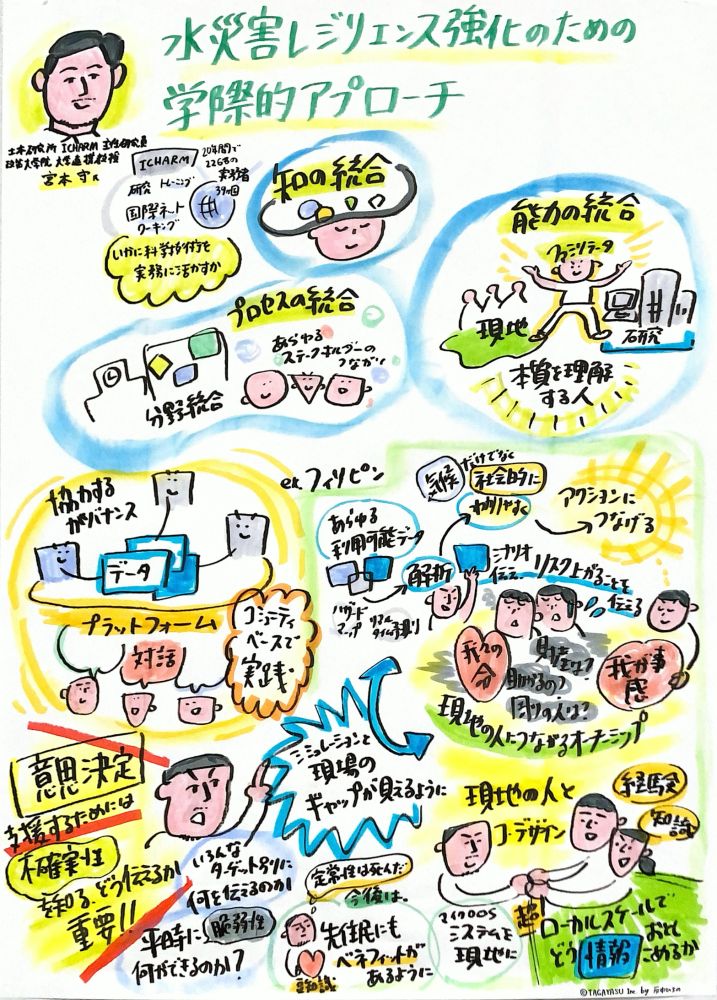 水災害レジリエンス強化のための
学際的アプローチ
土木研究所 ICHARM 主任研究員
政策大学院 大学連携教授
宮本 守氏
ICHARM
研究 トレーニング
国際ネット
ワーキング
20年間で
226名の
実務者
39ヵ国
いかに科学技術を
実務に活かすか
知の統合
能力の統合
ファシリテータ
現地
研究
本質を理解
する人
プロセスの統合
あらゆる
ステークホルダーの
つながり
分野統合
協力する
ガバナンス
データ
プラットフォーム
対話
コミュニティ
ベースで
実践
ex. フィリピン
気候
だけでなく
社会的に
わかりやすく
アクションに
つなげる
あらゆる
利用可能データ
ハザード
マップ
リアル
タイム
解析
シナリオ
伝え
リスク上がることを
伝える
我々の
分
財産は?
助かるの?
周りの人は?
我が事
感
現地の人につながるオーナーシップ
シミュレーションと
現場の
ギャップが見えるように
意思決定
支援するためには
不確実性
を知る、どう伝えるか
重要!!
いろんな
ターゲット別に
何を伝えるのか
平時に
脆弱性
何ができるのか?
定常性は死んだ
今後は。
先住民にも
ベネフィットが
あるように
豆知識
システムを
現地に
現地の人と
コ・デザイン
経験
知識
超
ローカルスケールで
どう
情報
おとし
こめるか
©TAGAYASU Inc. by